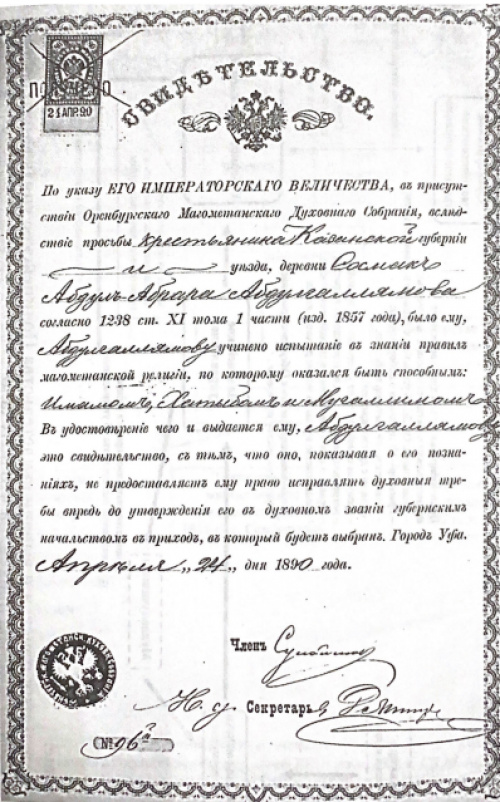 ПОЛУЧЕНО
24 АПР. 90
СВИДѢТЕЛЬСТВО.
По указу ЕГО ИМПЕРАТОРСКАГО ВЕЛИЧЕСТВА, въ присут-
ствіи Оренбургскаго Магометанскаго Духовнаго Собранія, вслѣд-
ствіе просьбы крестьянина Казанской губерніи
уѣзда, деревни
Абдулъ-Абрара Абдулгаллямова
согласно 1238 ст. XI тома 1 части (изд. 1857 года), было ему,
Абдулгаллямову учинено испытаніе въ знаніи правилъ
магометанской религіи, по которому оказался быть способнымъ:
Имамомъ, Хатыбомъ и Мугаллимомъ
Въ удостовѣреніе чего и выдается ему, Абдулгаллямову
это свидѣтельство, съ тѣмъ, что оно, показывая о его позна-
ніяхъ, не предоставляетъ ему право исправлять духовныя тре-
бы впредь до утвержденія его въ духовномъ званіи губернскимъ
начальствомъ въ приходъ, въ который будетъ выбранъ. Городъ Уфа.
Апрѣля „24„ дня 1890 года.
Членъ
И. д. Секретарь
№ 96